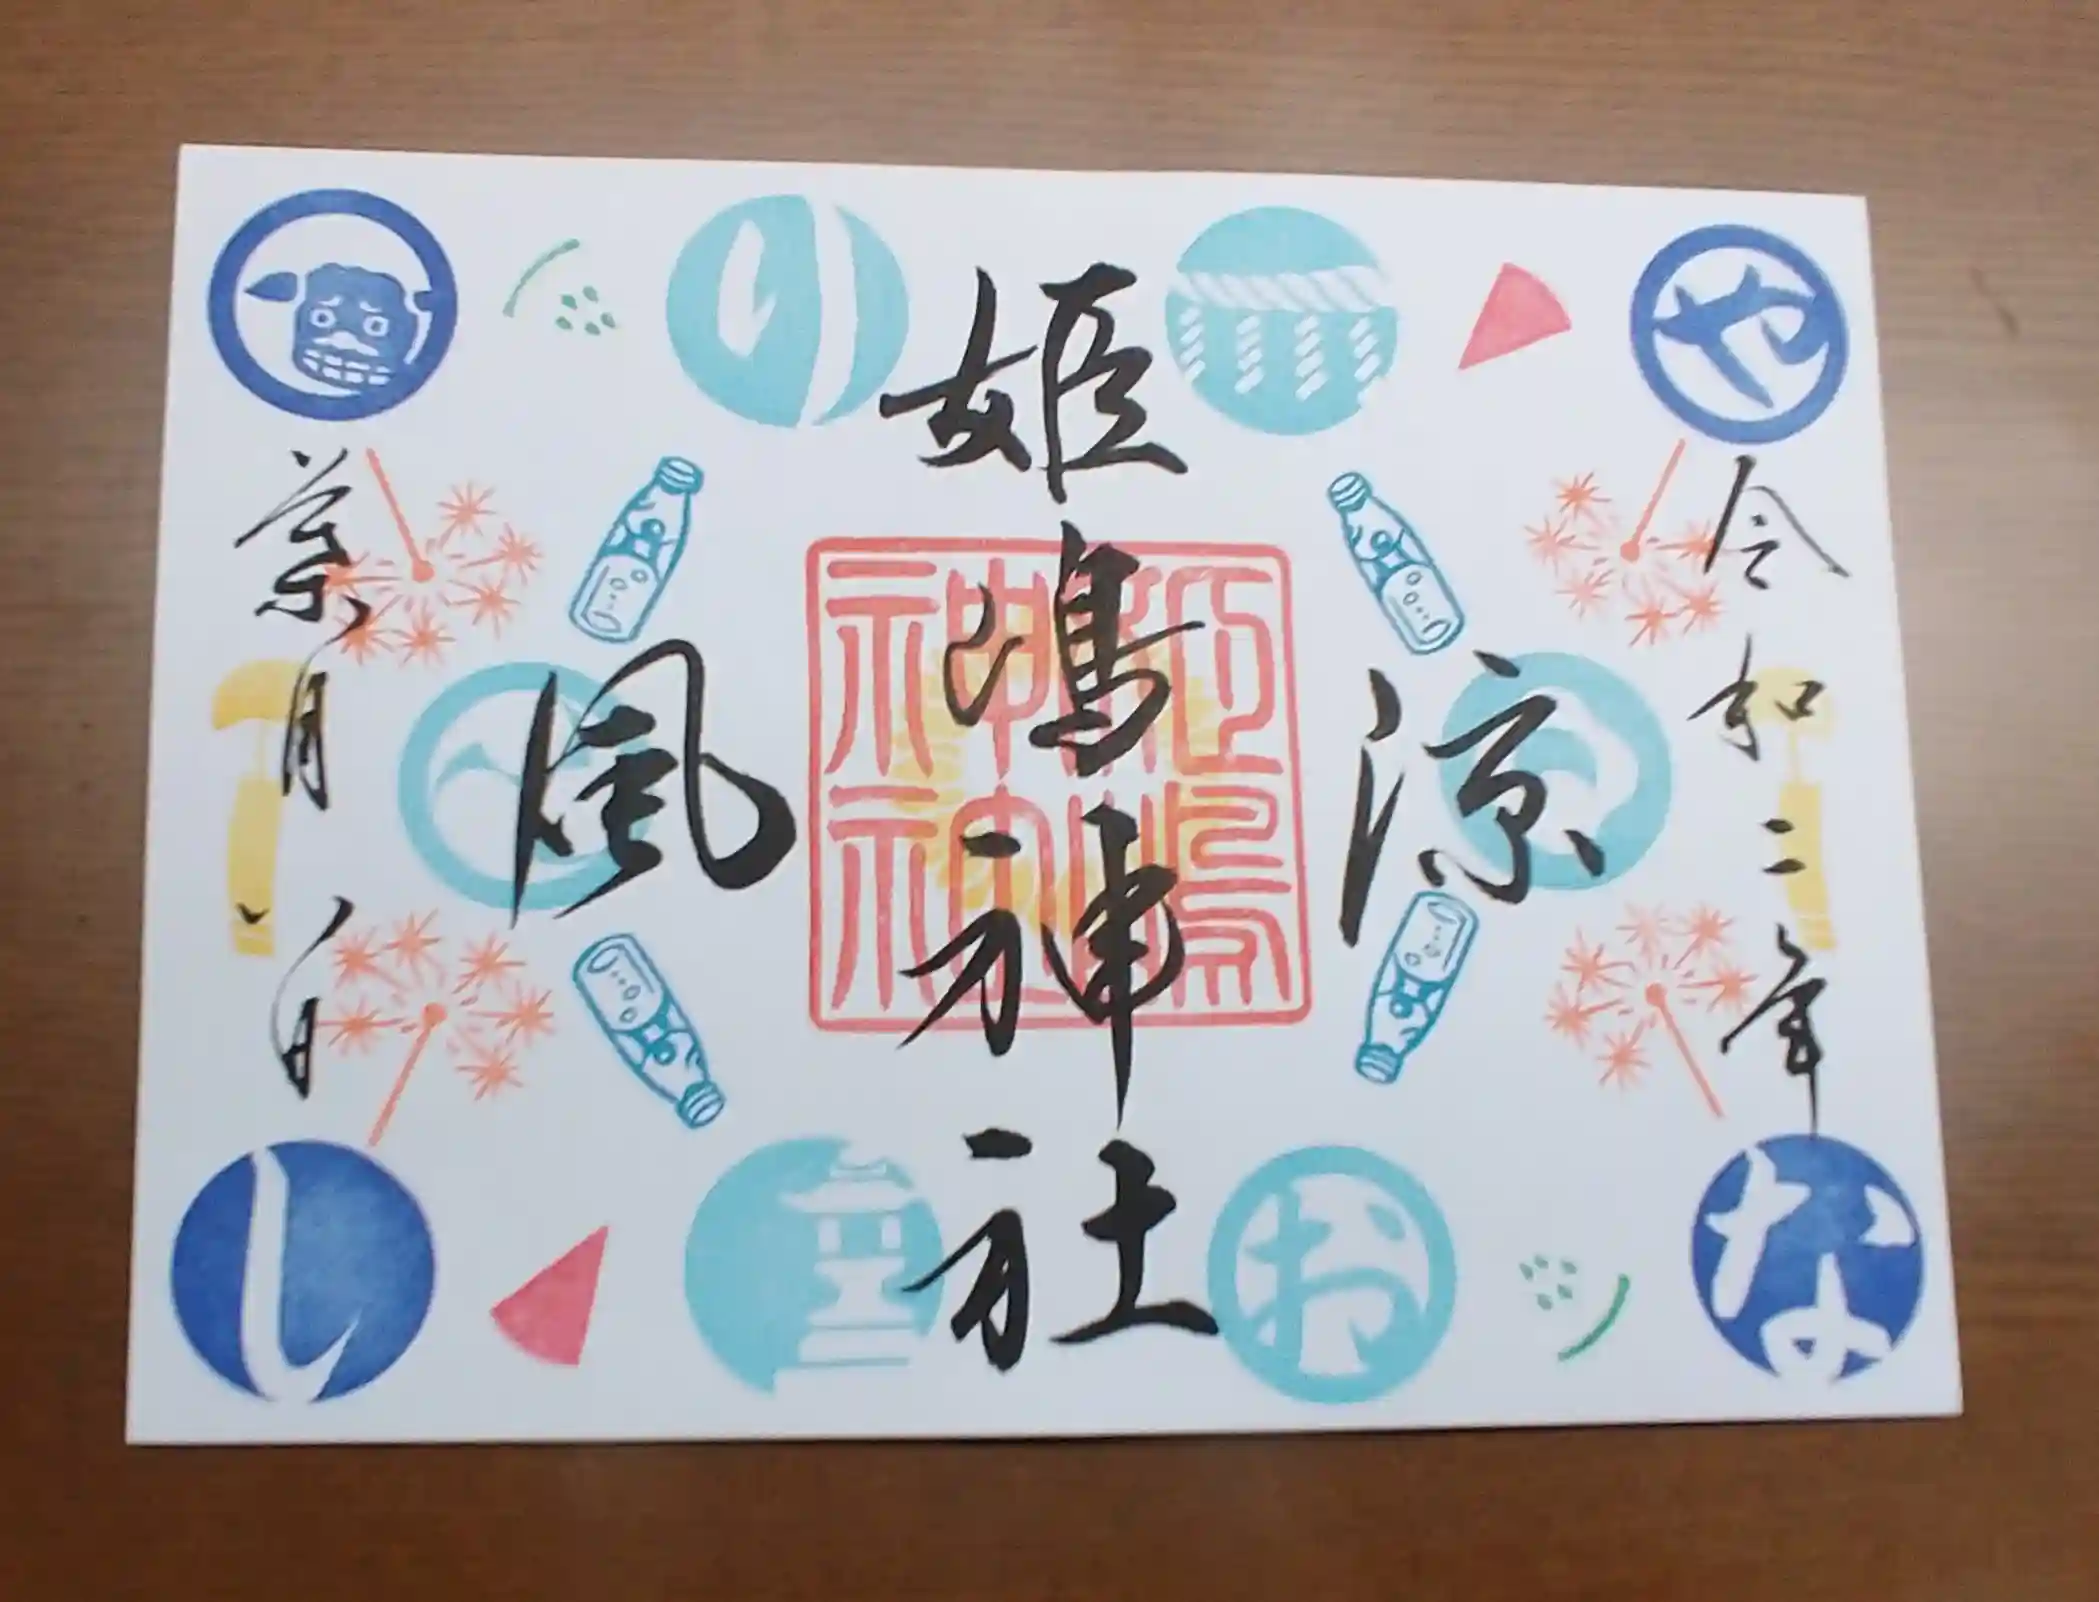 令和二年
涼
姫嶋神社
風
葉月 八日
姫嶋神社
や
の
な
お
し